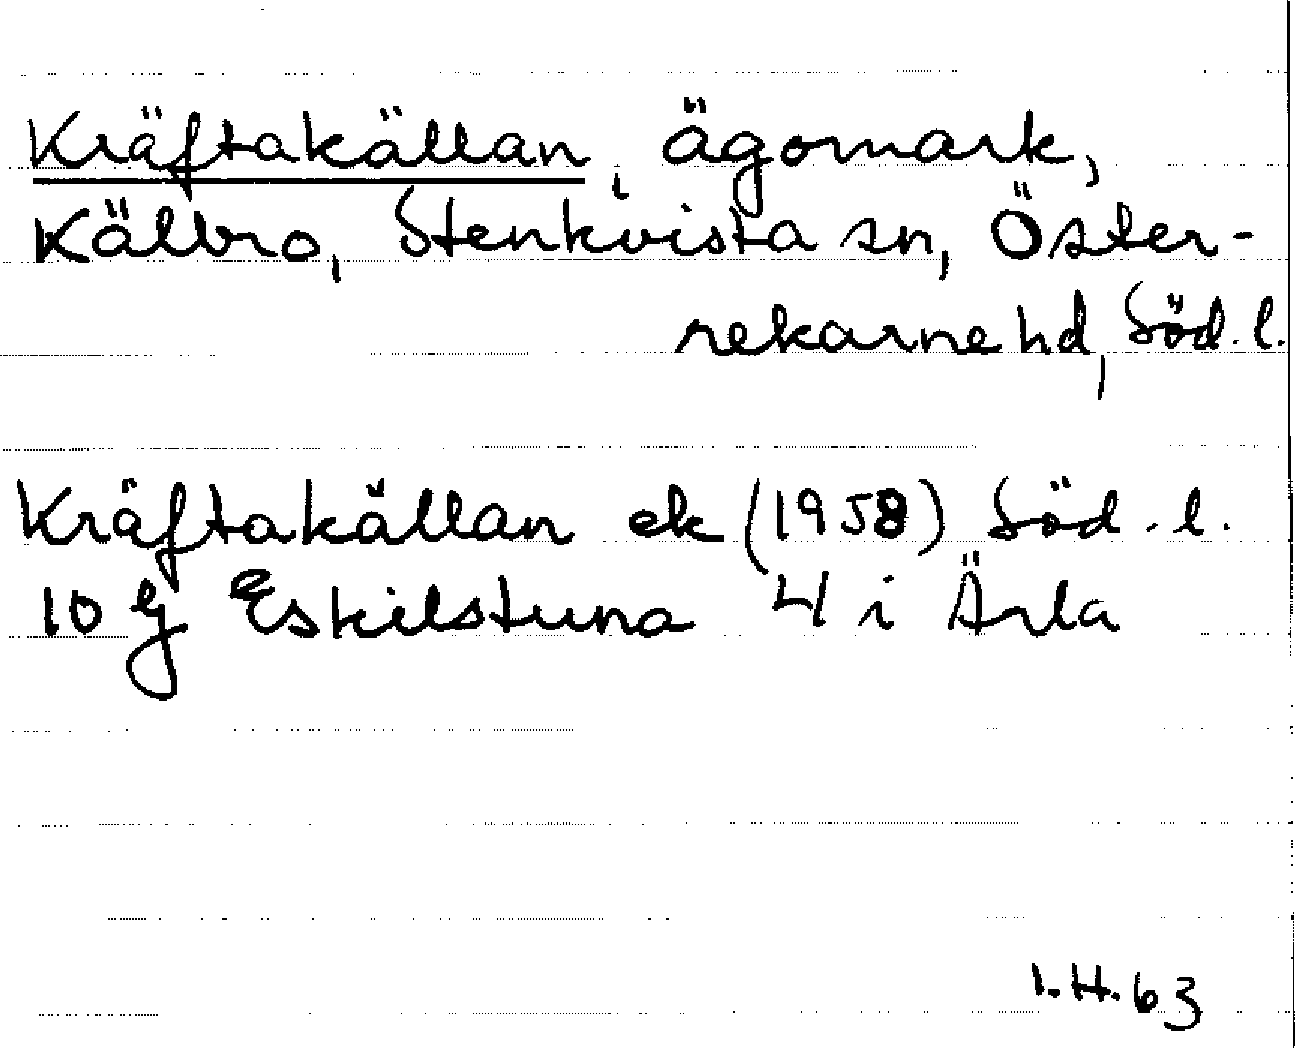 Kräftakällan, ägomark,
Kälbro, Stenkvista sn, Öster-
rekarne hd, Söd. l.
Kräftakällan ek (1958) Söd. l.
10 G Eskilstuna 4 i Ärla
I.H. 63